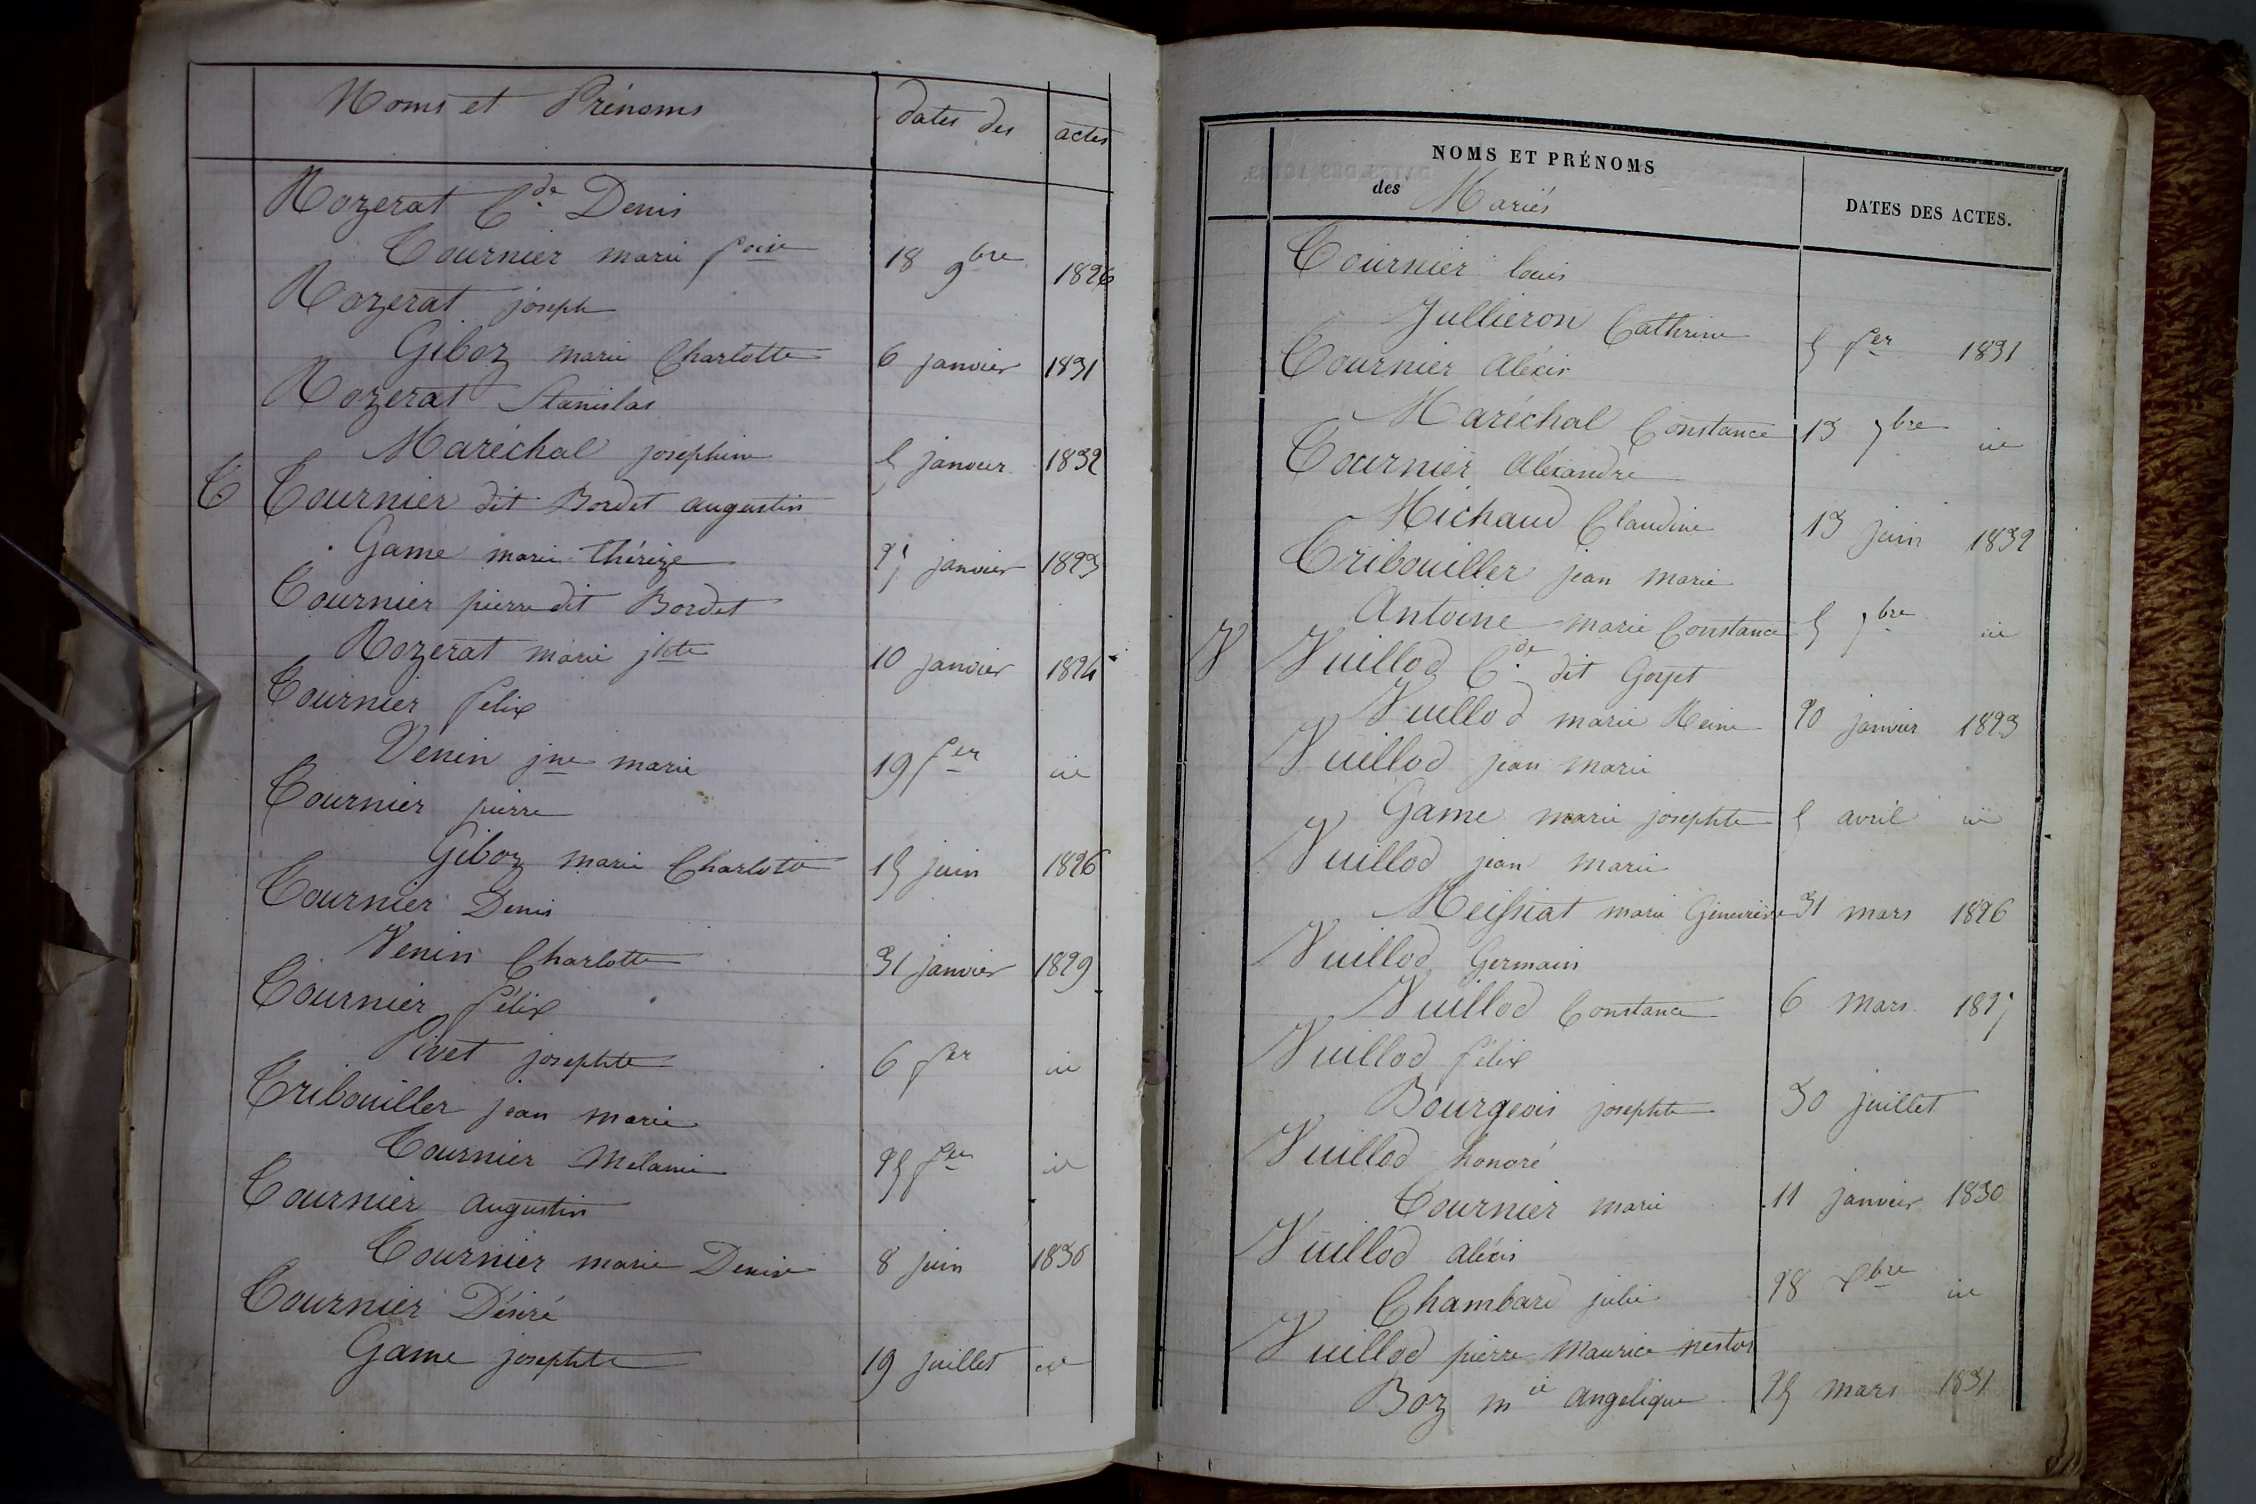 Noms et Prénoms dates des actes
Rozerat C.de Denis
Tournier marie foise 18 9bre 1826
Rozerat joseph
Giboz marie Charlotte 6 janvier 1831
Rozerat Stanislas
Maréchal joséphine 5 janvier 1832
T Tournier dit Bordet augustin
Game marie thérèze 27 janvier 1823
Tournier pierre dit Bordet
Rozerat marie jhte 10 janvier 1824
Tournier félix
Venin jne marie 19 fer id
Tournier pierre
Giboz marie Charlotte 15 juin 1826
Tournier Denis
Venin Charlotte 31 janvier 1829
Tournier félix
Pivet josephte 6 fer id
Tribouiller jean marie
Tournier Melanie 25 fer id
Tournier augustin
Tournier marie Denise 8 juin 1830
Tournier Désiré
Game josephte 19 juillet id
NOMS ET PRÉNOMS
des Mariés
DATES DES ACTES.
Tournier louis
Jullieron Catherine 5 fer 1831
Tournier aléxis
Maréchal Constance 13 7bre id
Tournier aléxandre
Michaud Claudine 13 juin 1832
Tribouiller jean marie
Antoine marie Constance 5 7bre id
V Vuillod C.de dit Goyet
Vuillod marie Reine 20 janvier 1823
Vuillod jean marie
Game marie josephte 5 avril id
Vuillod jean marie
Meissiat marie Géneviève 31 mars 1826
Vuillod Germain
Vuillod Constance 6 mars 1827
Vuillod félix
Bourgeois josephte 30 juillet
Vuillod honoré
Tournier marie 11 janvier 1830
Vuillod aléxis
Chambard julie 28 xbre id
Vuillod pierre Maurice nestor
Boz mie angelique 25 mars 1831